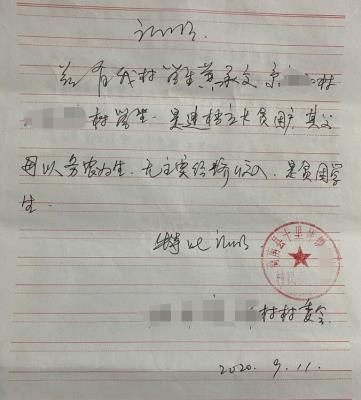 证明
兹有我村学生黄承文，系村
村学生，是建档立卡贫困户，其父
母以务农为生，无主要经济收入，是贫困学
生。
特此证明
十里
村村委会
2020.9.11.